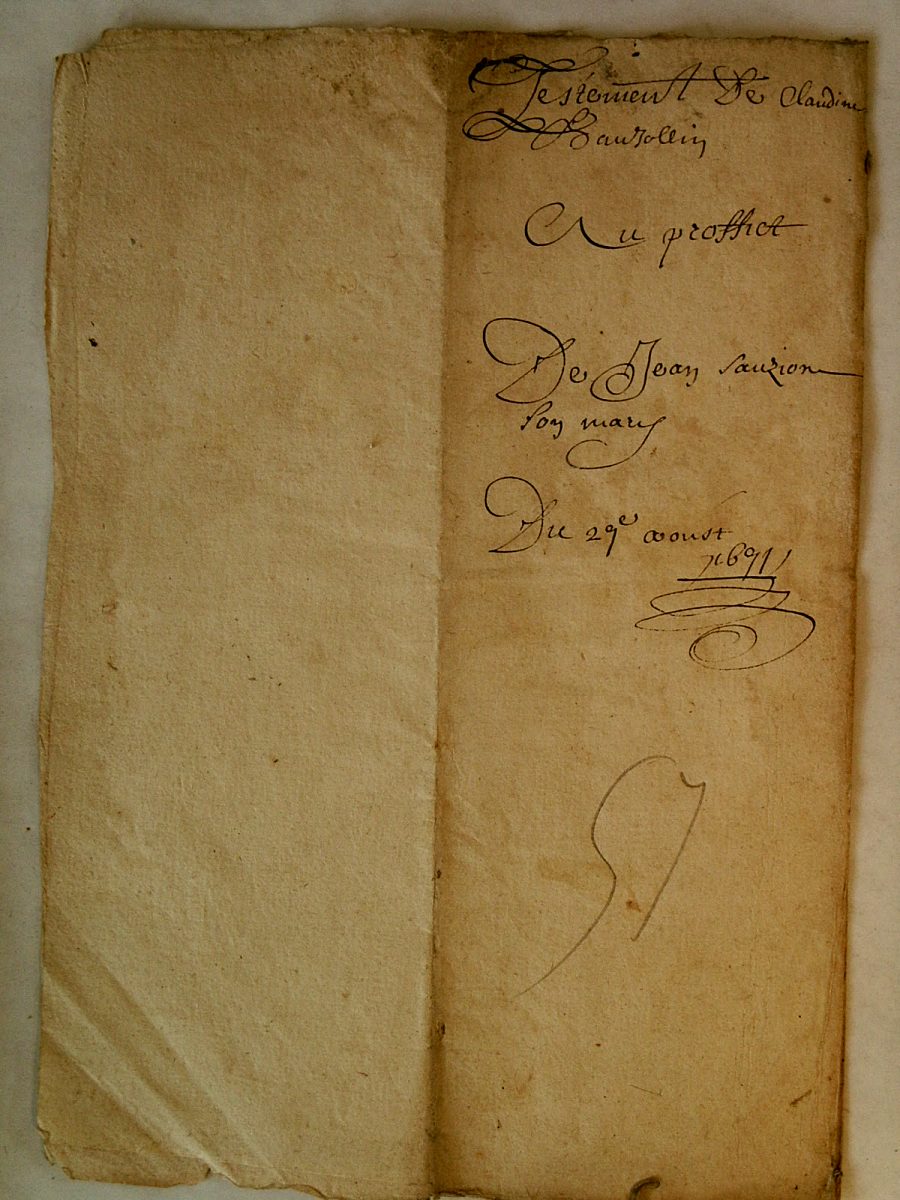 Testement De Claudine
Bauzollin
Au proffict
De Jean Sauzion
son mary
Du 29e aoust
1691
57